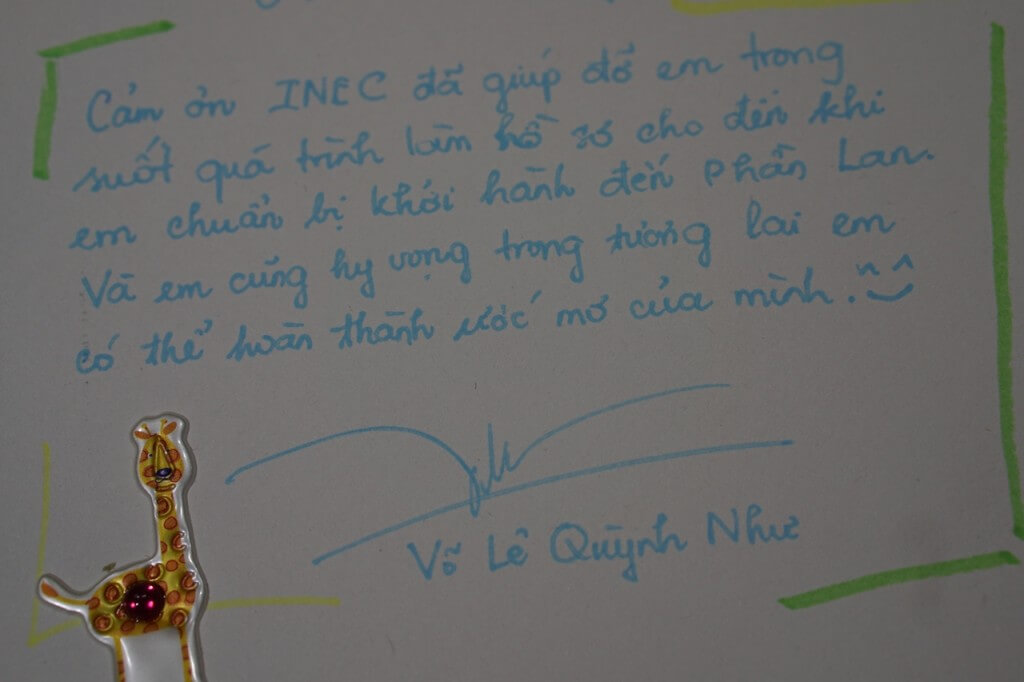 Cảm ơn INEC đã giúp đỡ em trong
suốt quá trình làm hồ sơ cho đến khi
em chuẩn bị khởi hành đến Phần Lan.
Và em cũng hy vọng trong tương lai em
có thể hoàn thành ước mơ của mình. ^^
Võ Lê Quỳnh Như